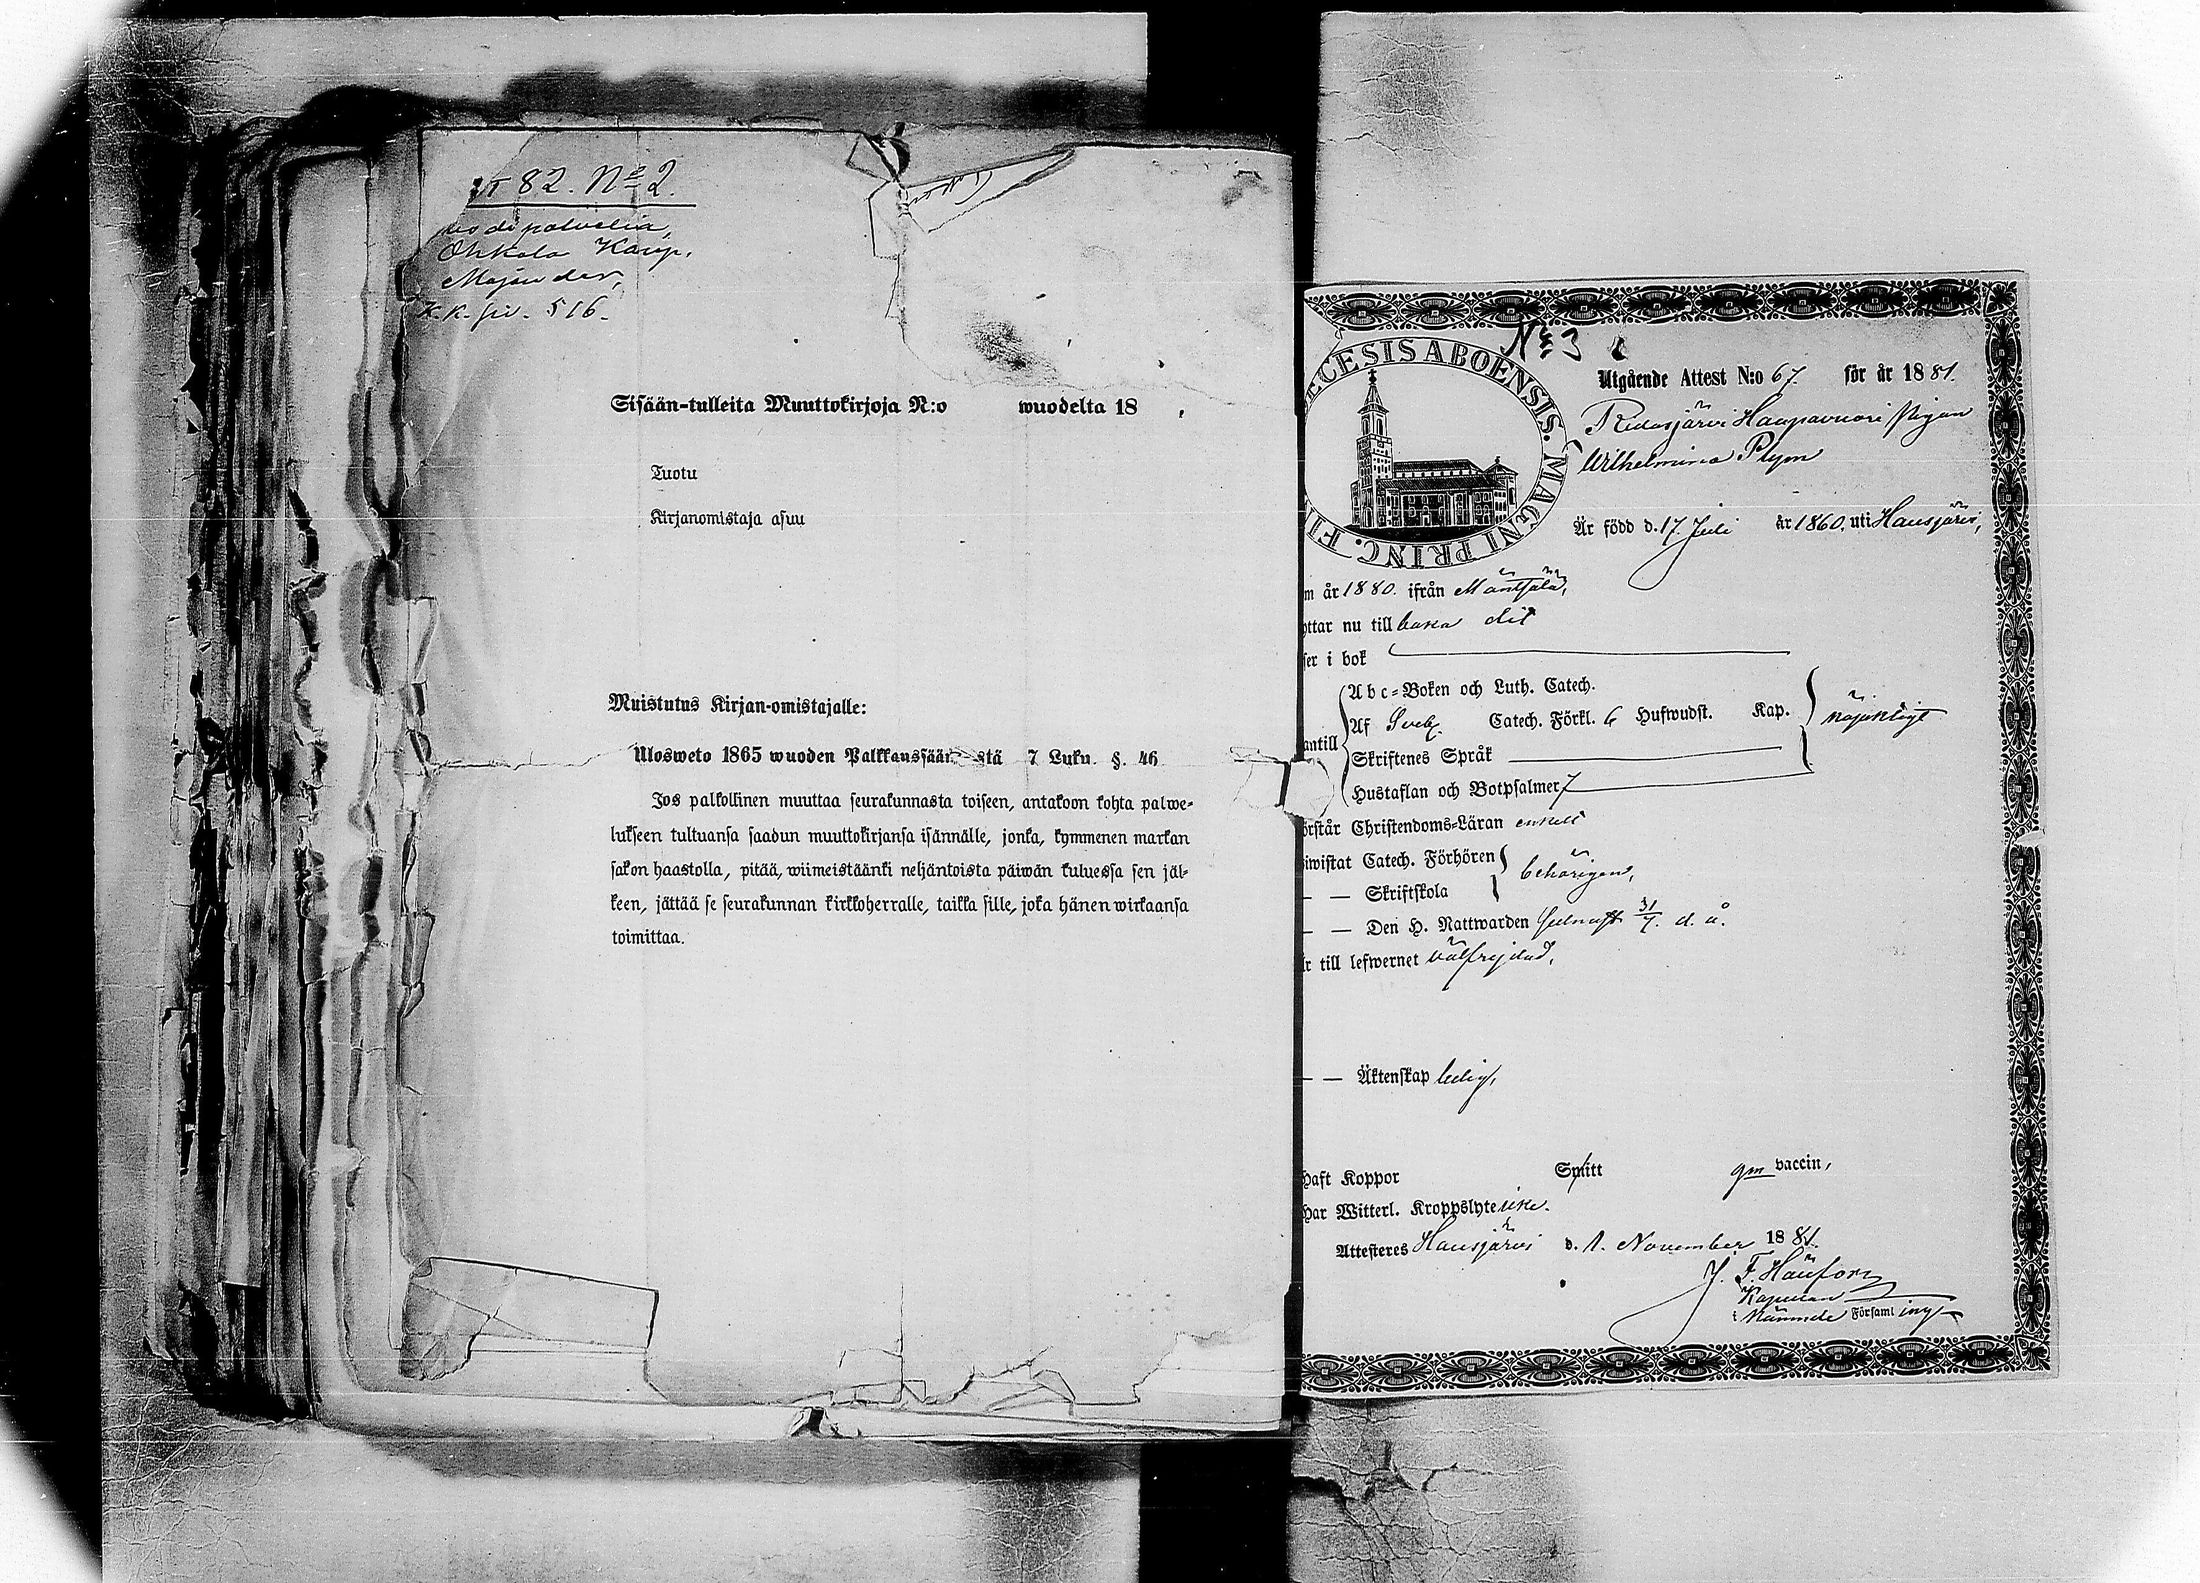 82. No 2.
Ohkola Kamp.
K. k. siv. 516.
Sisään-tulleita Muuttokirjoja N:o wuodelta 18 .
Tuotu
Kirjanomistaja asuu
Muistutus Kirjan-omistajalle:
Ulosweto 1865 wuoden Palkkaussään stä 7 Luku. §. 46
Jos palkollinen muuttaa seurakunnasta toiseen, antakoon kohta palwe-
lukseen tultuansa saadun muuttokirjansa isännälle, jonka, kymmenen markan
sakon haastolla, pitää, wiimeistäänki neljäntoista päiwän kuluessa sen jäl-
keen, jättää se seurakunnan kirkkoherralle, taikka sille, joka hänen wirkaansa
toimittaa.
No 3
ECESIS ABOENSIS. MAGNI PRINC. FI
Utgående Attest N:o 67. för år 1881.
Ridasjärvi Haapavuori pigan
Wilhelmina Plym
Är född d. 17 Juli år 1860. uti Hausjärvi,
m år 1880. ifrån Mäntsälä,
ottar nu till baka dit
ser i bok
antill
Abc-Boken och Luth. Catech.
Af Sveb. Catech. Förkl. 6 Hufwudst. Kap. nöjaktigt
Skriftenes Språk
Hustaflan och Botpsalmer 7
örstår Christendoms-Läran enkelt
iwistat Catech. Förhören behörigen,
— — Skriftskola
— — Den H. Nattwarden senast 31/7. d. å.
r till lefwernet välfrejdad,
— — Äktenskap ledig,
haft Koppor Smitt gm vaccin,
har Witterl. Kroppslyte icke.
Attesteres Hausjärvi d. 1. November 1881.
Kapellan
i Nämnde Församling